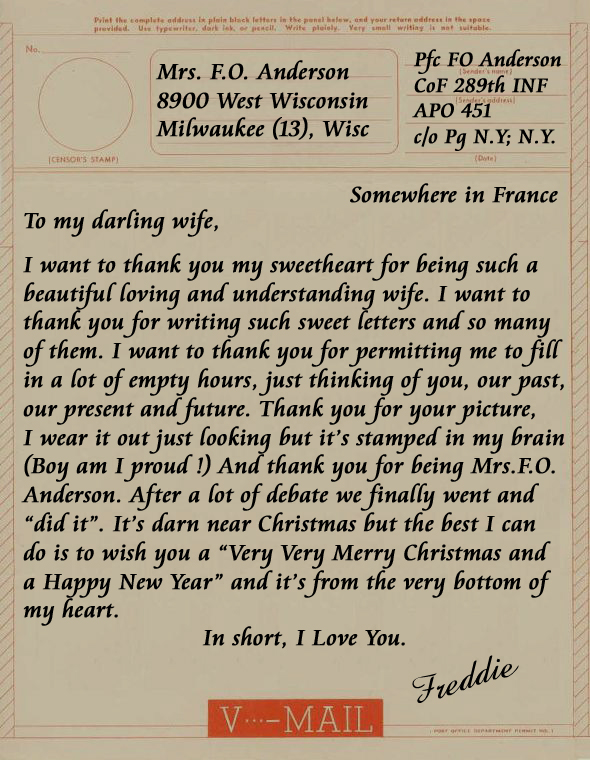 Print the complete address in plain block letters in the panel below, and your return address in the space
provided. Use typewriter, dark ink, or pencil. Write plainly. Very small writing is not suitable.
No.
(CENSOR'S STAMP)
Mrs. F.O. Anderson
8900 West Wisconsin
Milwaukee (13), Wisc
Pfc FO Anderson
(Sender's name)
CoF 289th INF
(Sender's address)
APO 451
c/o Pg N.Y; N.Y.
(Date)
Somewhere in France
To my darling wife,
I want to thank you my sweetheart for being such a
beautiful loving and understanding wife. I want to
thank you for writing such sweet letters and so many
of them. I want to thank you for permitting me to fill
in a lot of empty hours, just thinking of you, our past,
our present and future. Thank you for your picture,
I wear it out just looking but it's stamped in my brain
(Boy am I proud !) And thank you for being Mrs.F.O.
Anderson. After a lot of debate we finally went and
“did it”. It's darn near Christmas but the best I can
do is to wish you a “Very Very Merry Christmas and
a Happy New Year” and it's from the very bottom of
my heart.
In short, I Love You.
Freddie
V···—MAIL
(POST OFFICE DEPARTMENT PERMIT NO. )